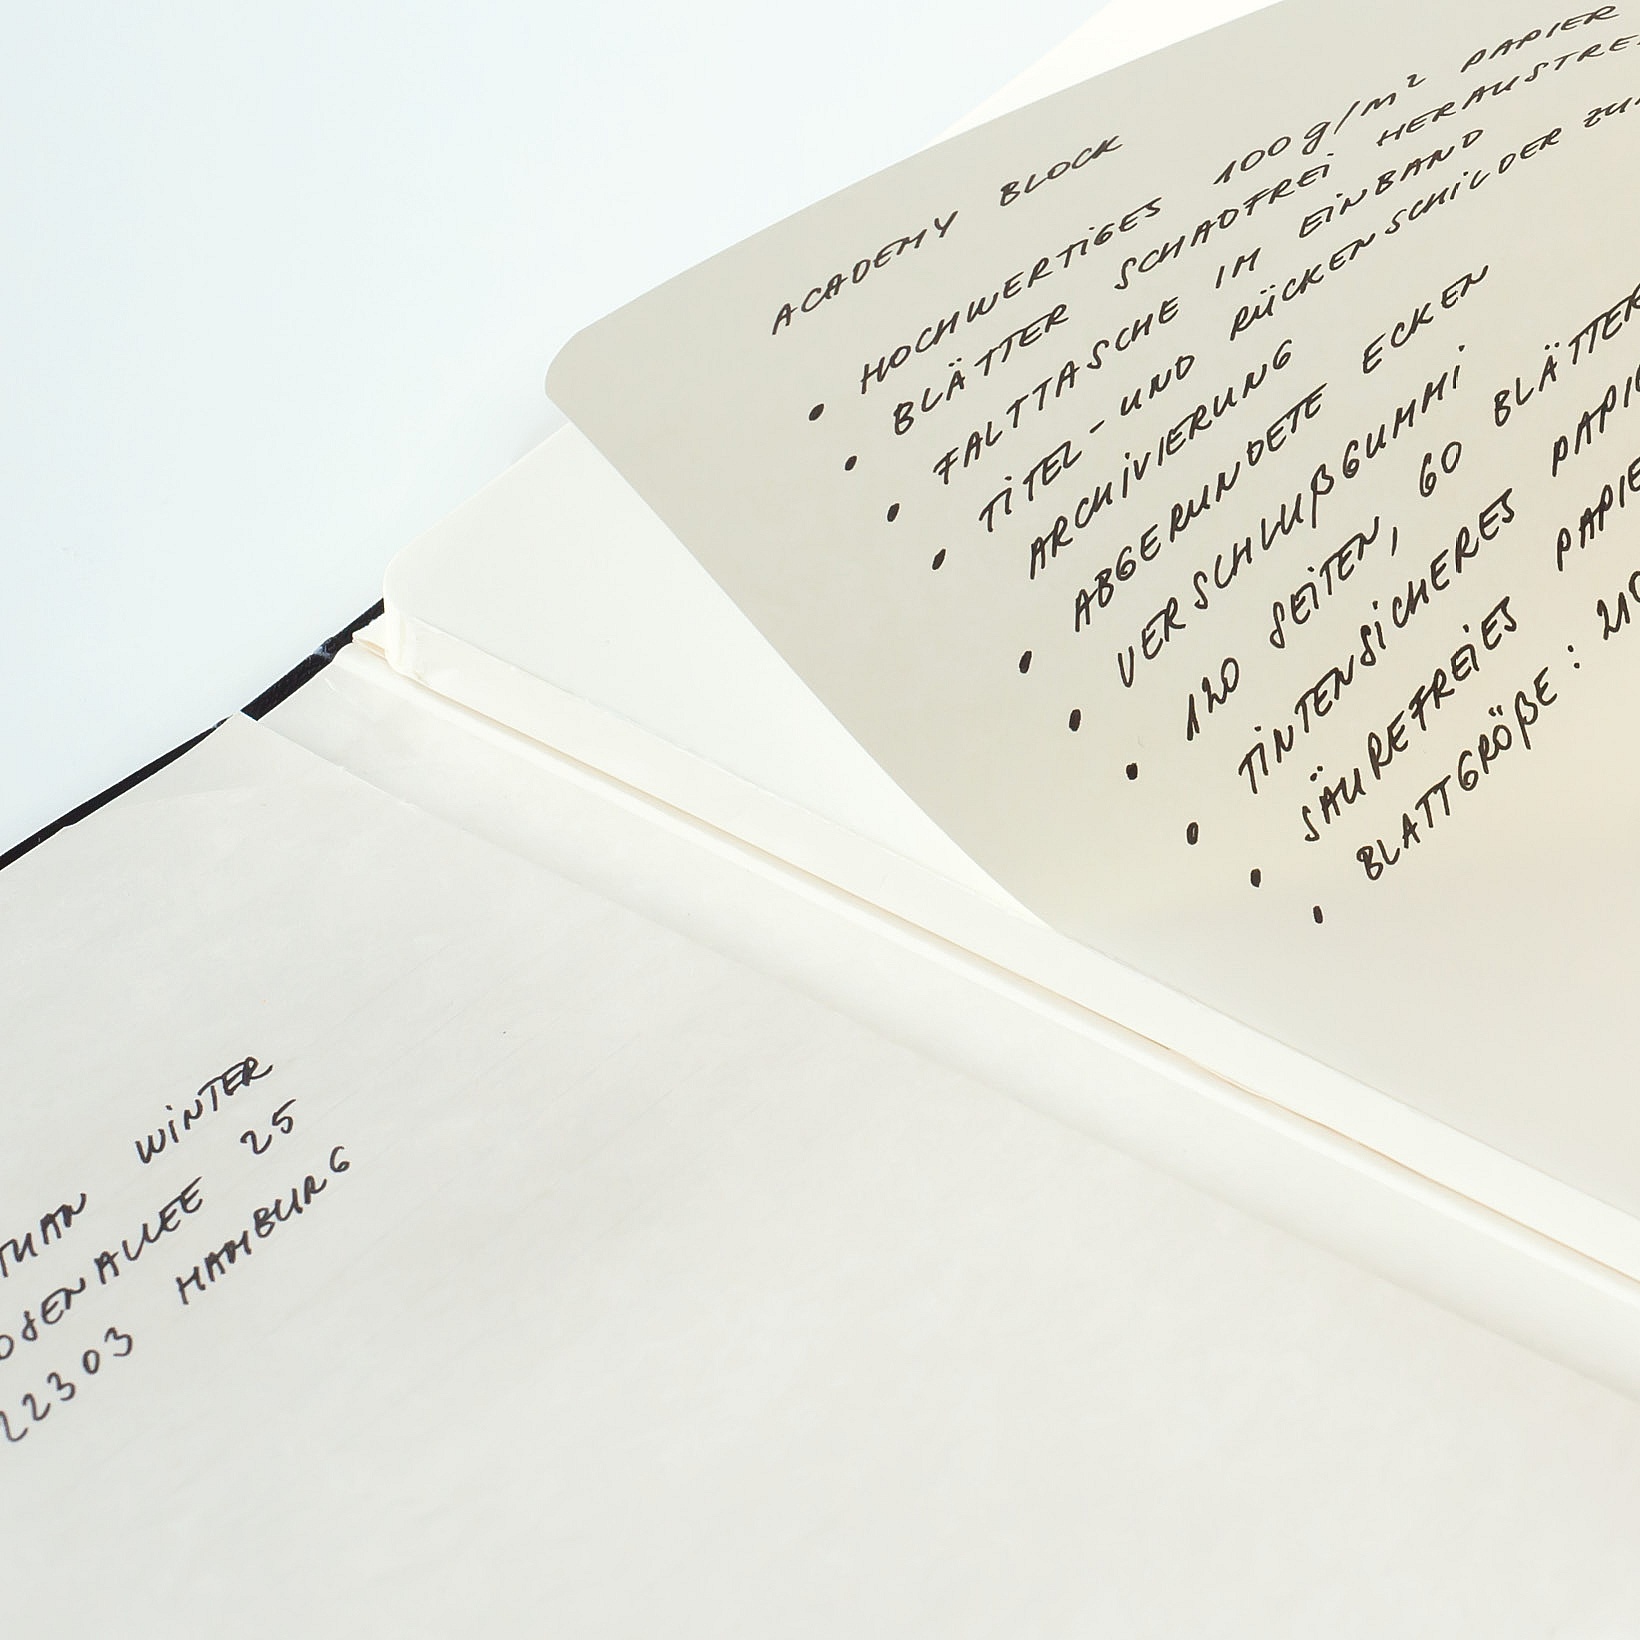 ACADEMY BLOCK
• HOCHWERTIGES 100g/m² PAPIER
• BLÄTTER SCHADFREI HERAUSTRE
• FALTTASCHE IM EINBAND
• TITEL-UND RÜCKENSCHILDER ZU
ARCHIVIERUNG
• ABGERUNDETE ECKEN
• VERSCHLUßGUMMI
• 120 SEITEN, 60 BLÄTTER
• TINTENSICHERES PAPIE
• SÄUREFREIES PAPIE
• BLATTGRÖßE: 210
THAN WINTER
OSENALLEE 25
22303 HAMBURG